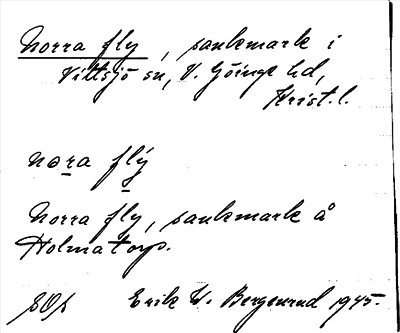 Norra fly, sankmark i
Vittsjö sn, V. Göinge hd,
Krist. l.
nọra flý
Norra fly, sankmark å
Holmatorp.
SOs Erik W. Bergenrud 1945.